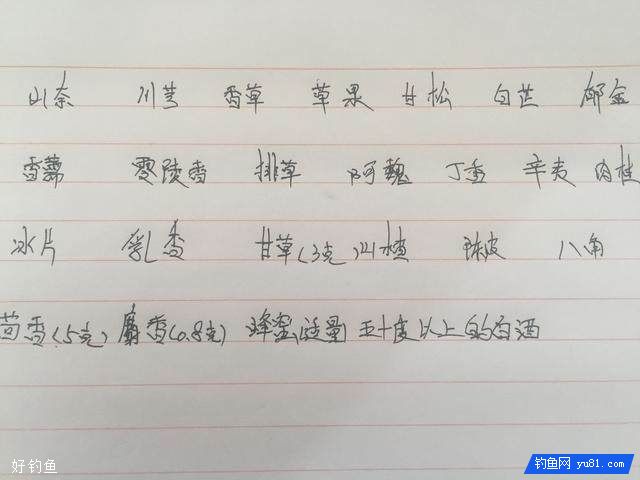 山奈 川芎 香草 草果 甘松 白芷 郁金
零陵香 排草 阿魏 丁香 辛夷 肉桂
冰片 乳香 甘草(3克) 山楂 陈皮 八角
茴香(5克) 麝香(0.8克) 蜂蜜适量 五十度以上的白酒
好钓鱼
钓鱼网 yu81.com